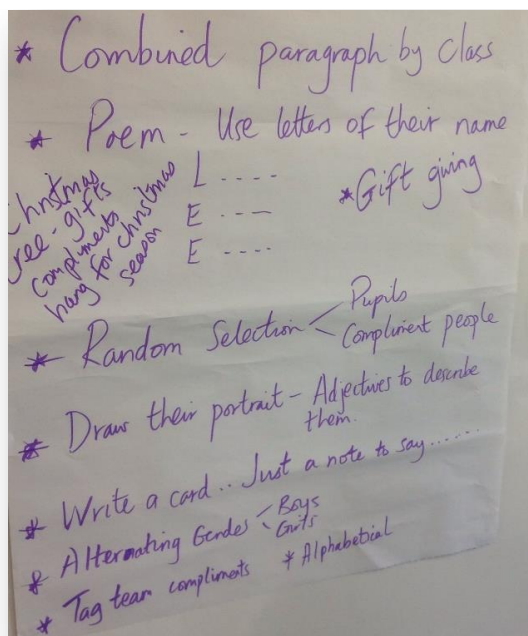 * Combined paragraph by class
* Poem - Use letters of their name
L ....
E ....
E ....
* Gift giving
Christmas
Tree - gifts
compliments
hang for christmas
season
* Random Selection < Pupils
Compliment people
* Draw their portrait - Adjectives to describe
them.
* Write a card .. Just a note to say.......
* Alternating Gendes < Boys
Girls
* Tag team compliments * Alphabetical